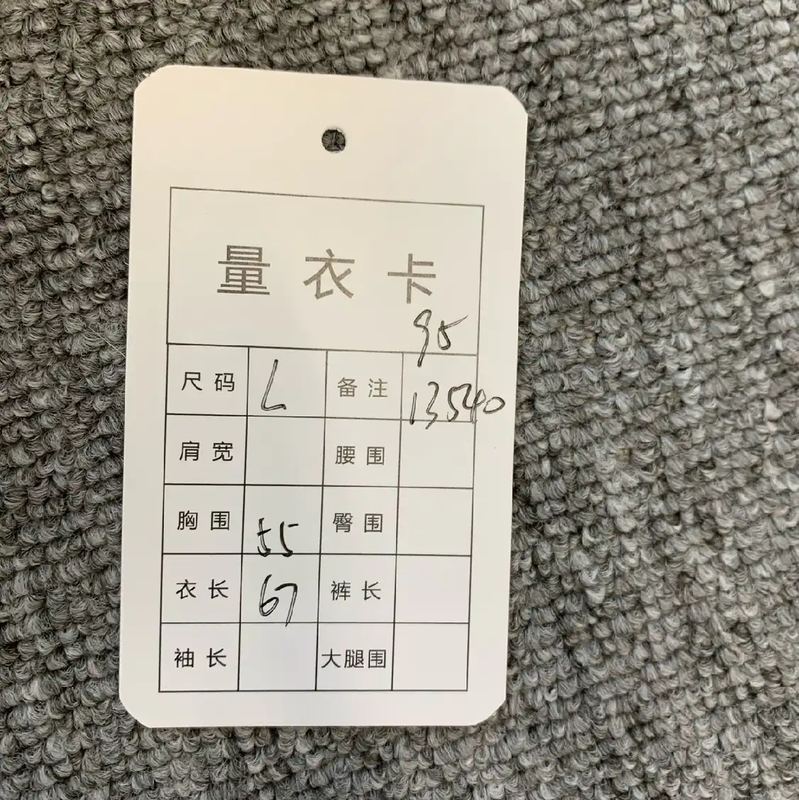 量衣卡
95
尺码 L 备注 13540
肩宽 腰围
胸围 55 臀围
衣长 67 裤长
袖长 大腿围